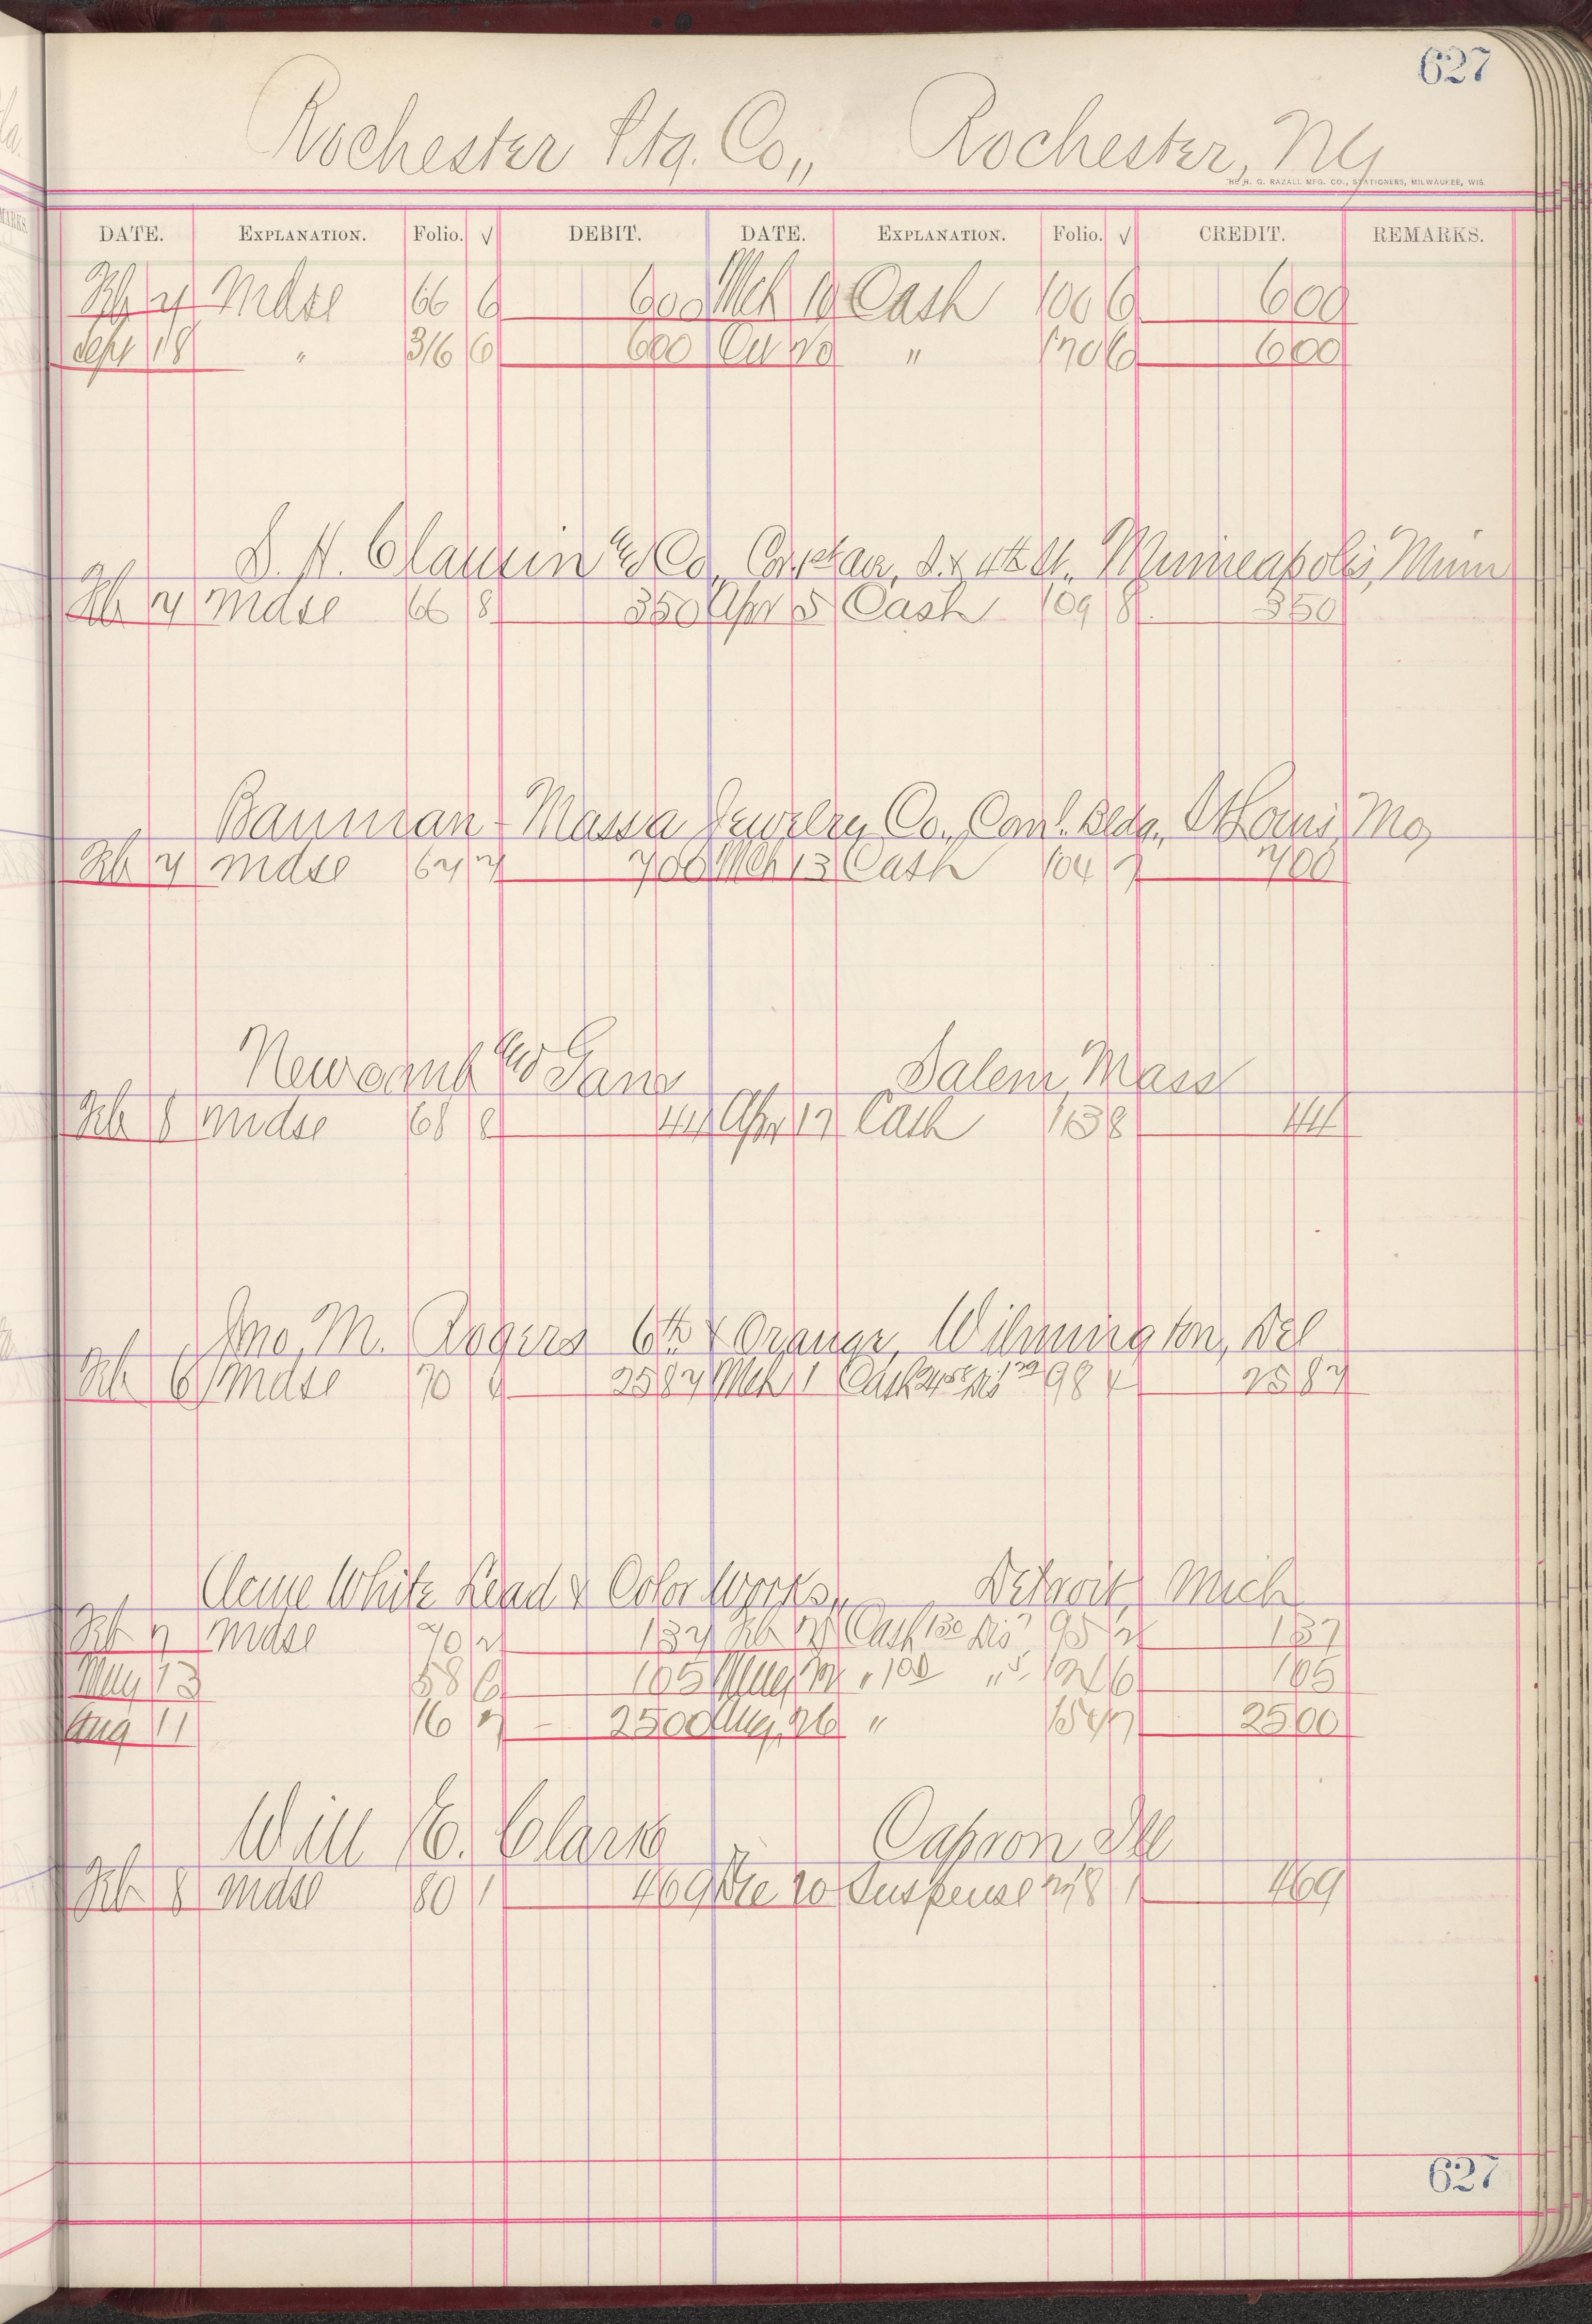 627
Rochester Ptg. Co., Rochester, NY
THE H. G. RAZALL MFG. CO., STATIONERS, MILWAUKEE, WIS.
DATE. EXPLANATION. Folio. √ DEBIT. DATE. EXPLANATION. Folio. √ CREDIT. REMARKS.
Feb 7 Mdse 66 6 600 Mch 10 Cash 100 6 600
Sept 18 " 316 6 600 Oct 20 " 170 6 600
S. H. Clausin & Co, Cor. 1st Ave, S. & 4th St. Minneapolis, Minn
Feb 7 Mdse 66 8 350 Apr 5 Cash 109 8 350
Bauman-Massa Jewelry Co., Coml. Bldg., St Louis, Mo,
Feb 7 Mdse 67 7 700 Mch 13 Cash 104 7 700
Newcomb and Gans Salem, Mass
Feb 8 Mdse 68 8 44 Apr 17 Cash 113 8 44
Jno. M. Rogers 6th & Orange, Wilmington, Del
Feb 6 Mdse 70 2587 Mch 1 Cash 98 2587
Acme White Lead & Color Works, Detroit, Mich
Feb 7 Mdse 70 2 137 Feb 21 Cash 130 Dis 7 95 2 137
May 13 58 6 105 May " 100 " 5 6 105
Aug 11 16 7 2500 Aug 26 " 154 7 2500
Will E. Clark Capron Ill
Feb 8 Mdse 80 1 469 Dec 20 Suspense 1 469
627